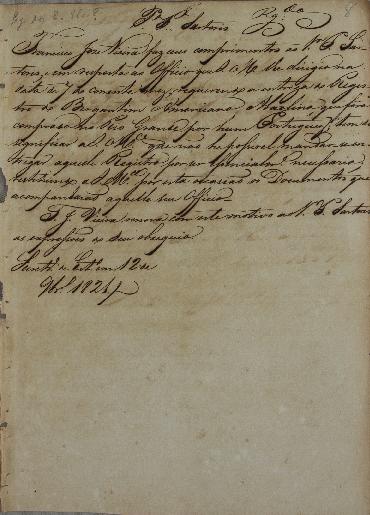 P. Sartoris Rg.do
8
Francisco José Vieira faz seus comprimentos ao Sr. P. Sar-
toris, e em resposta ao Officio que S. M.ce lhe dirigio na
data de 7 do corrente mez, requerendo a entrega do Regis-
tro do Bergantim Americano
comprado no Rio Grande por hum Portuguez, tem de
significar a S. M.ce que não he possivel mandar a en-
trega daquelle Registro, por
restituindo a S. M.ce por esta occasião os Documentos que
acompanharão aquelle seu Officio.
F. J. Vieira renova com este motivo ao Sr. P. Sartoris
as expressões do seu obsequio.
Secret.a de Est.o em 12 de
9br.o 1821